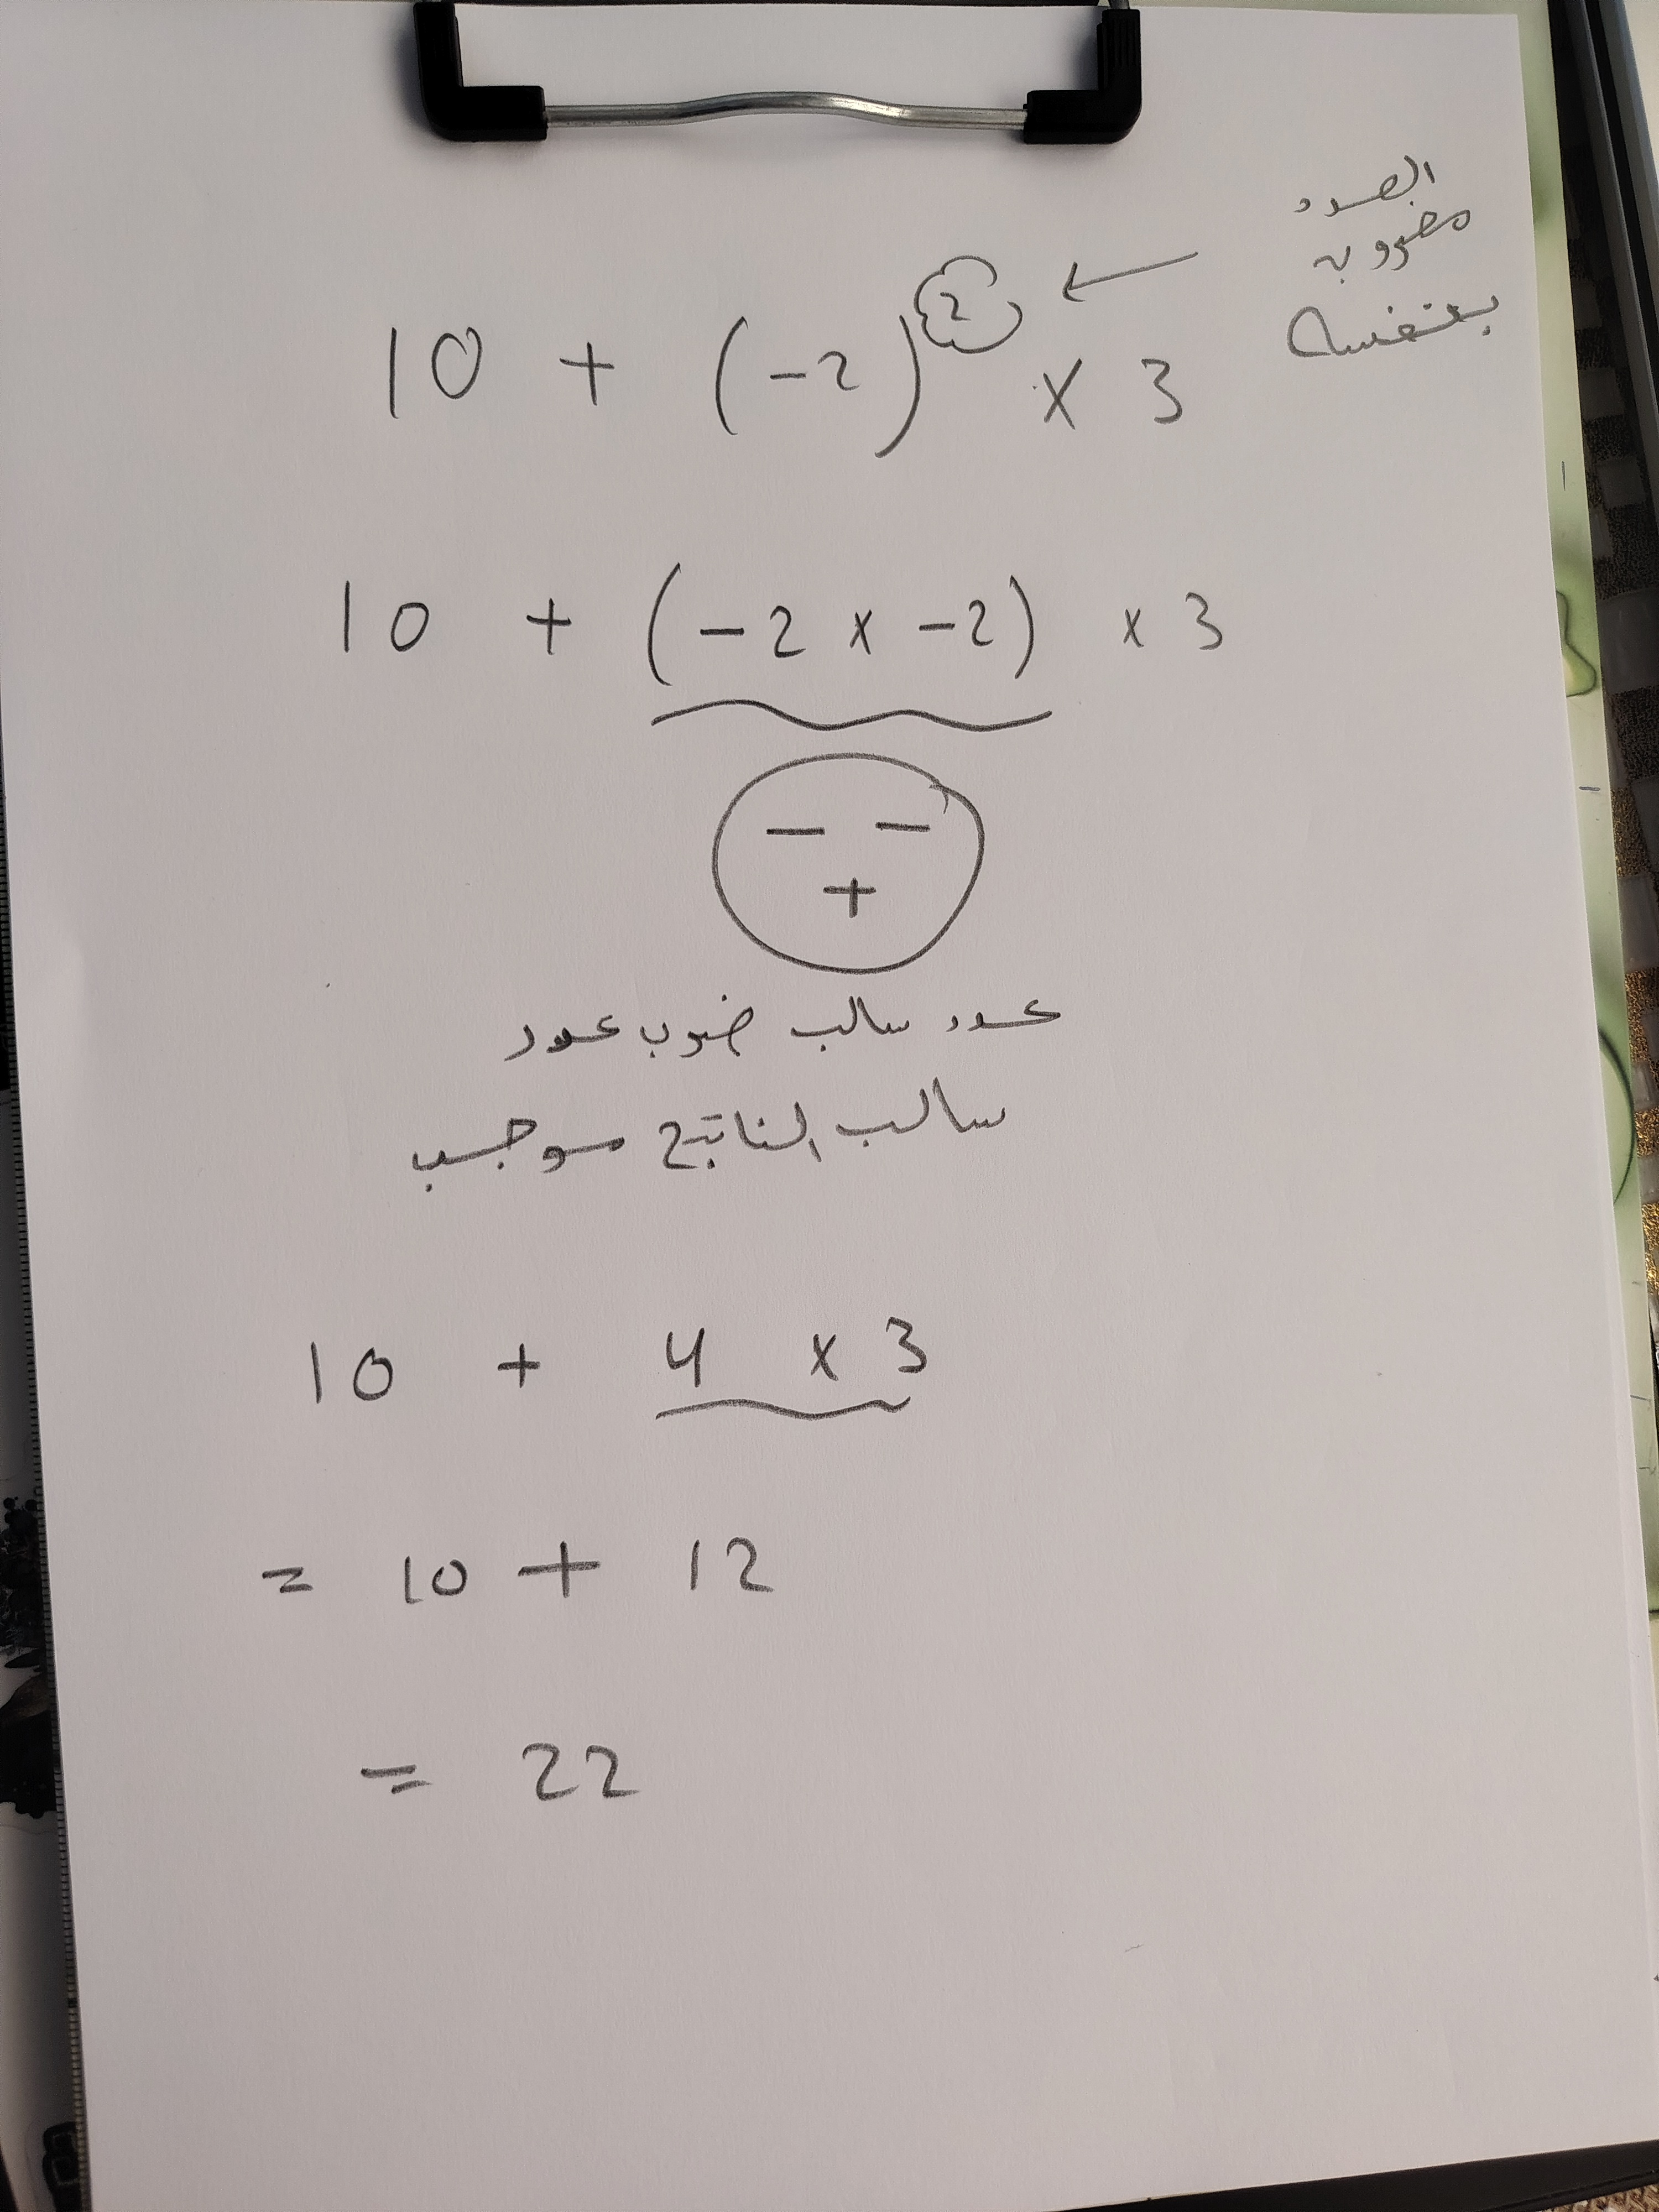 العدد
مضروب
بنفسه
10 + (-2)² × 3
10 + (-2 × -2) × 3
- -
+
عدد سالب ضرب عدد
سالب الناتج موجب
10 + 4 × 3
= 10 + 12
= 22